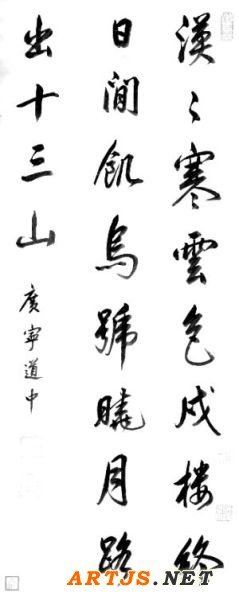 漠々寒雲色戍樓終
日閒飢烏號曉月路
出十三山
廣寧道中
ARTJS.NET